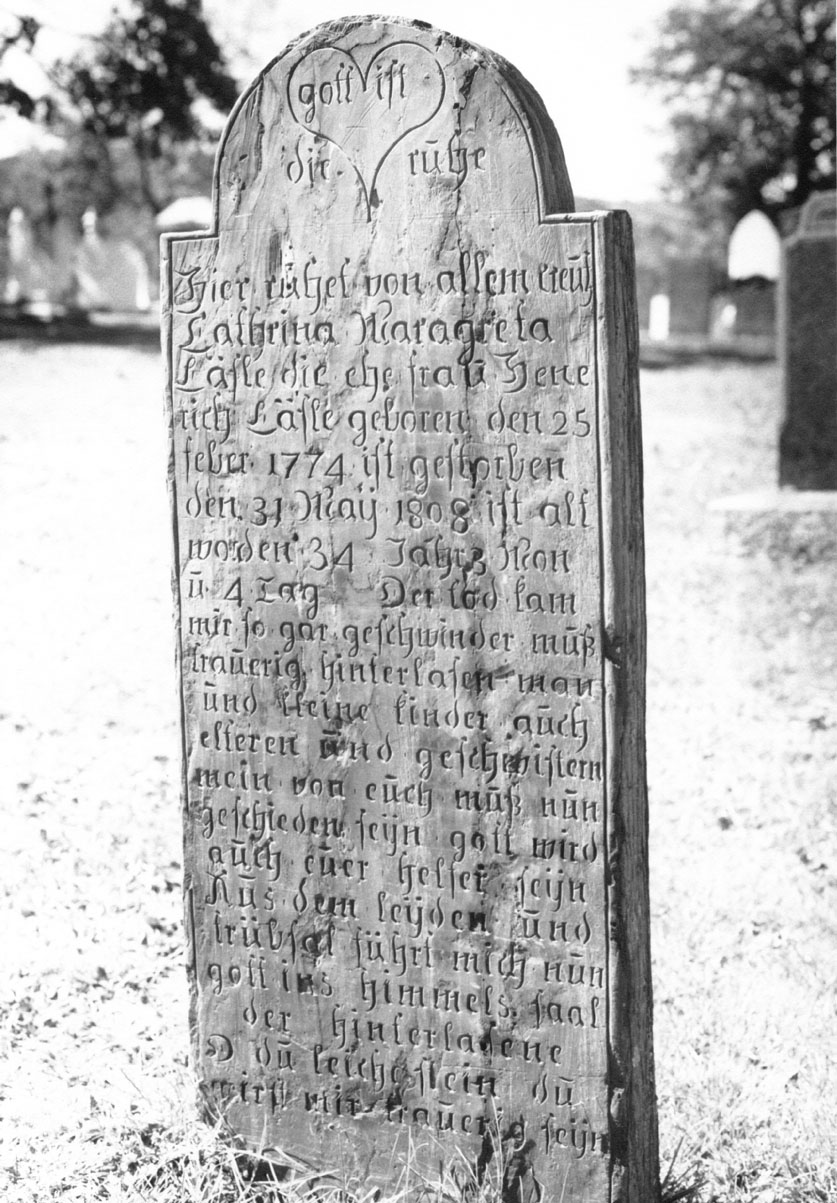 gott ist
die rūhe
Hier rūhet von allem creūtz
Cathrina Maragreta
Läsle die ehe fraū Hene
rich Läsle geboren den 25
feber 1774 ist gestorben
den 31 Maÿ 1808 ist alt
worden 34 Jahr 3 Mon
ū 4 Tag Der tod kam
mir so gar geschwinder mūß
traūerig hinterlasen man
ūnd kleine kinder aūch
elteren ūnd geschwistern
mein von eūch mūß nūn
geschieden seÿn gott wird
aūch eūer helfer seÿn
Aūs dem leÿden ūnd
trübsal führt mich nūn
gott ins himmels saal
der hinterlasene
O dū leichestein dū
wirst mir traūerig seÿn